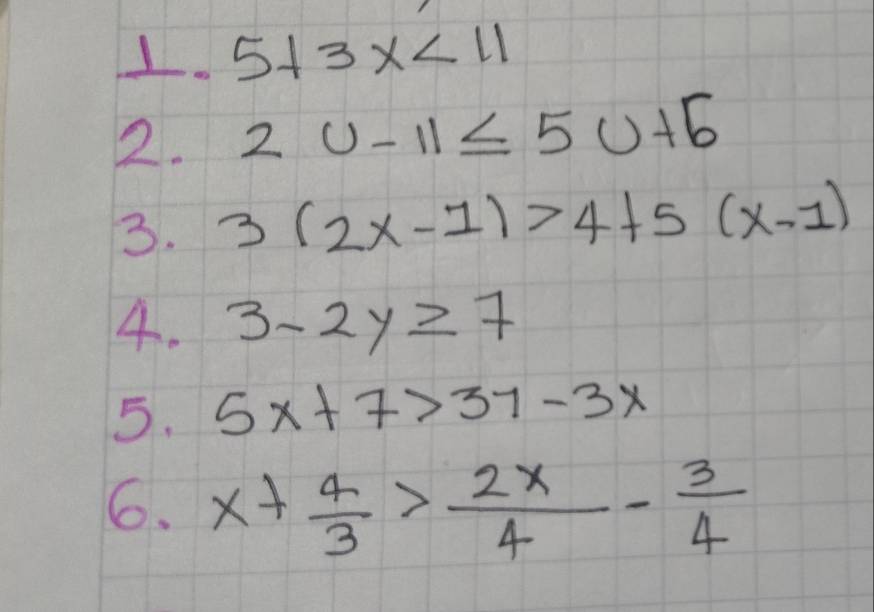 1. 5+3x<11
2. 2U-11≤5U+6
3. 3(2x-1)>4+5(x-1)
4. 3-2y≥7
5. 5x+7>31-3x
6. x+4/3>2x/4-3/4